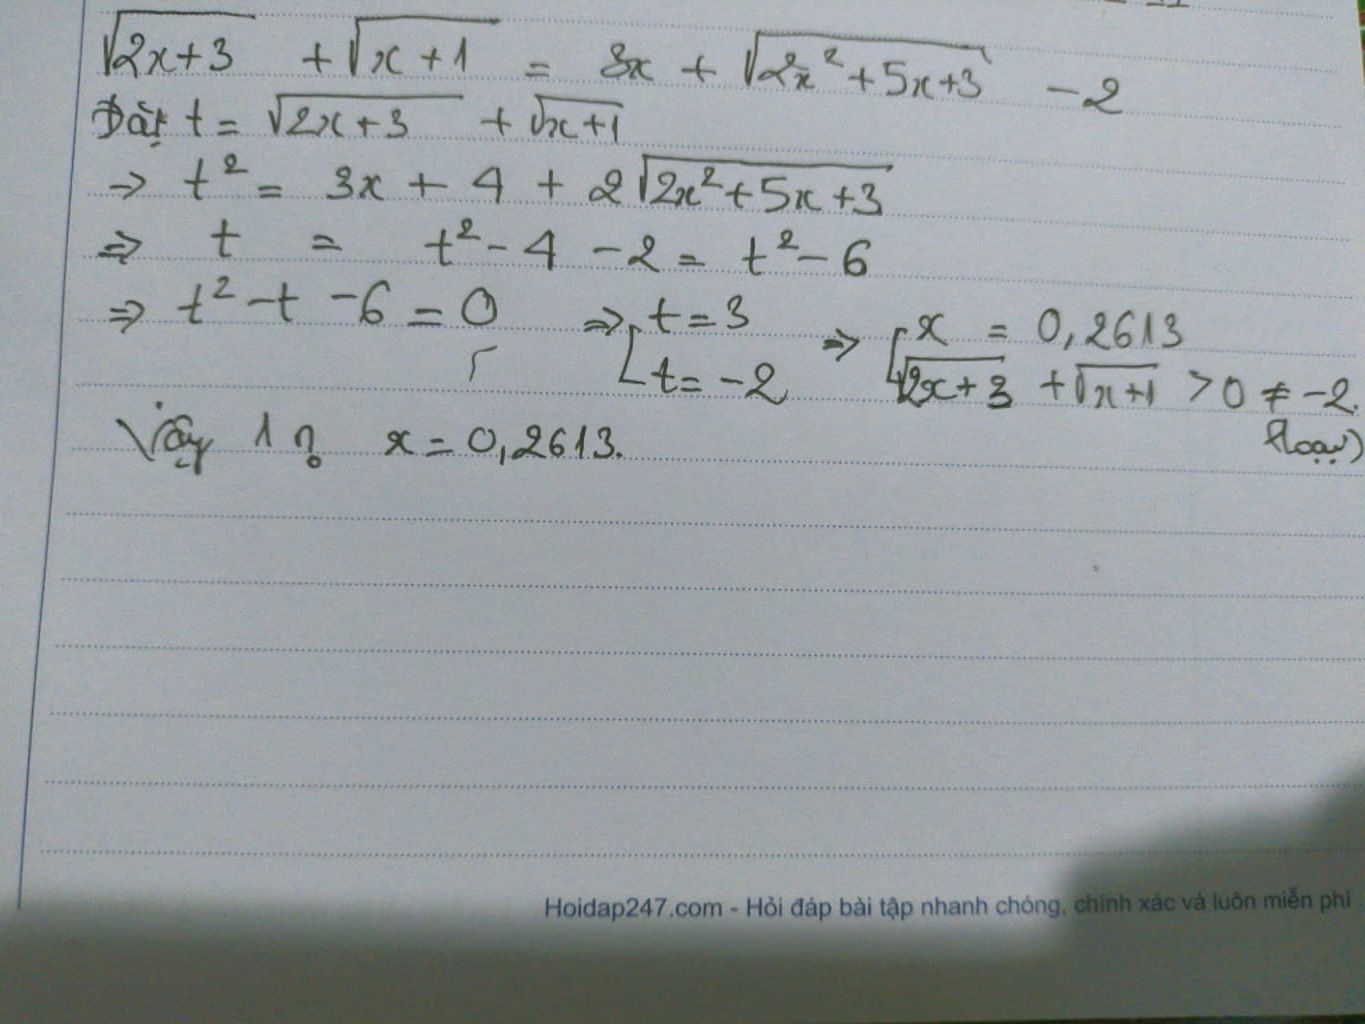 √(2x+3) + √(x+1) = 3x + √(2x²+5x+3) - 2
Đặt t = √(2x+3) + √(x+1)
→ t² = 3x + 4 + 2√(2x²+5x+3)
⇒ t = t² - 4 - 2 = t² - 6
⇒ t² - t - 6 = 0 ⇒ [ t = 3 ⇒ [ x = 0,2613
t = -2 √(2x+3) + √(x+1) > 0 ≠ -2.
(loại)
Vậy 1 n0 x = 0,2613.
Hoidap247.com - Hỏi đáp bài tập nhanh chóng, chính xác và luôn miễn phí